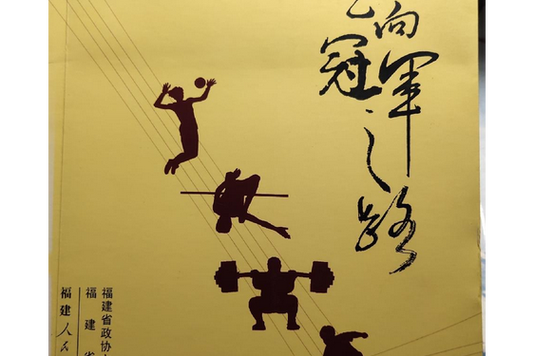 向
冠军
之路
福建省政协
福建省
福建人民